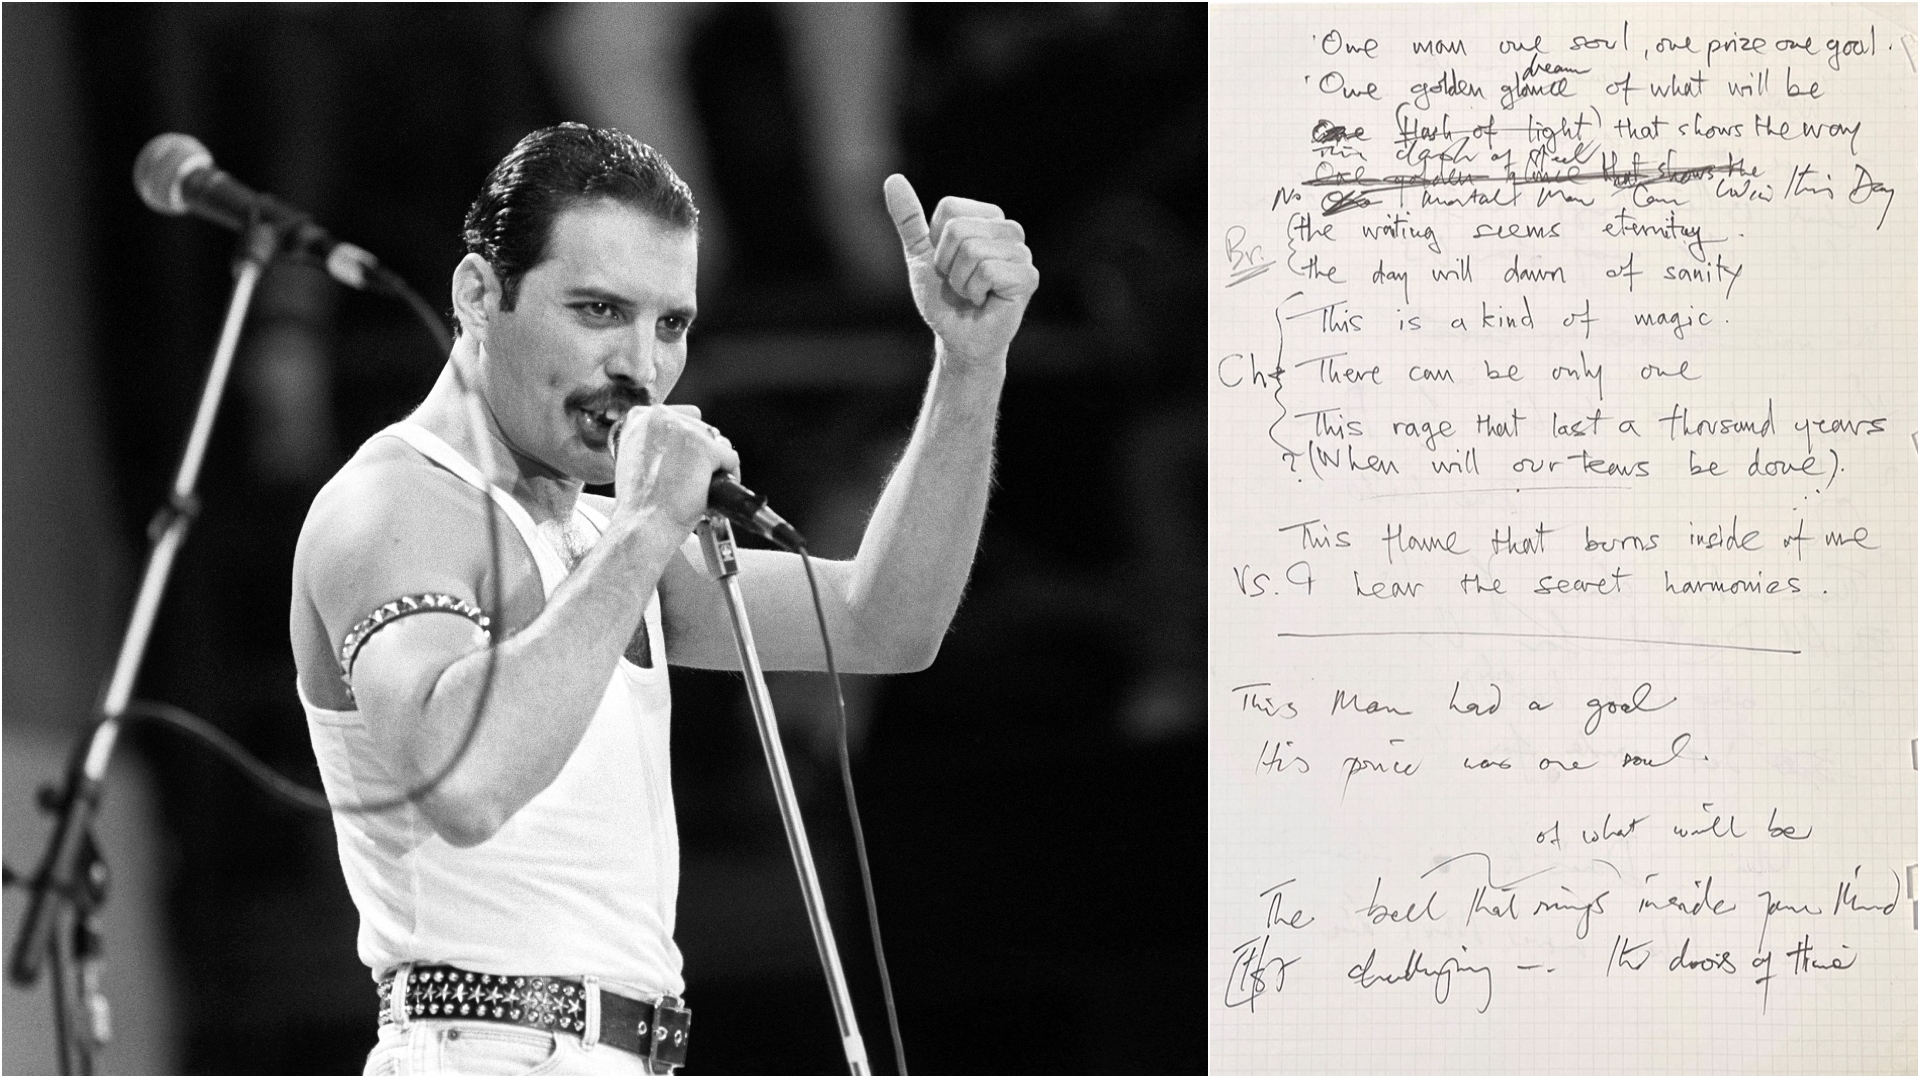 One man one soul, one prize one goal.
dream
One golden glance of what will be
One (flash of light) that shows the way
One golden glance that shows the
No mortal Man Can Win This Day
Br. (the waiting seems eternity.
(the day will dawn of sanity
This is a kind of magic.
Ch There can be only one
This rage that last a thousand years
? (When will our tears be done).
This flame that burns inside of me
Vs. I hear the secret harmonies.
This Man had a goal
His price was one soul.
of what will be
The bell that rings inside your Mind
challenging -. the doors of time